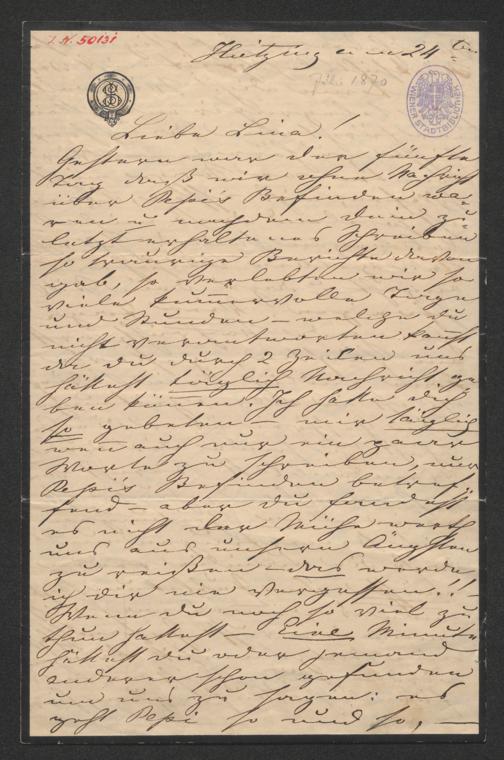 I. N. 50131
Hietzing am 24ten
Juli 1870
WIENER STADTBIBLIOTHEK
Liebe Lina!
Gestern war der fünfte
Tag daß wir ohne Nachricht
über Pepi's Befinden wa-
ren u nachdem dein zu-
letzt erhaltenes Schreiben
so traurige Berichte davon
gab, so verlebten wir so
viele kumervolle Tage
und Stunden – welche du
nicht verantworten kanst
da du durch 2 Zeilen uns
hättest täglich Nachricht ge-
ben können. Ich hatte dich
so gebeten – mir täglich
wen auch nur ein paar
Worte zu schreiben, nur
Pepi's Befinden betref-
fend – aber du fandest
es nicht der Mühe werth
uns aus unsern Ängsten
zu reißen – das werde
ich dir nie vergessen!!
Wenn du noch so viel zu
thun hattest – Eine Minute
hättest du oder jemand
anderer schon gefunden
um uns zu sagen: es
geht Pepi so und so, –